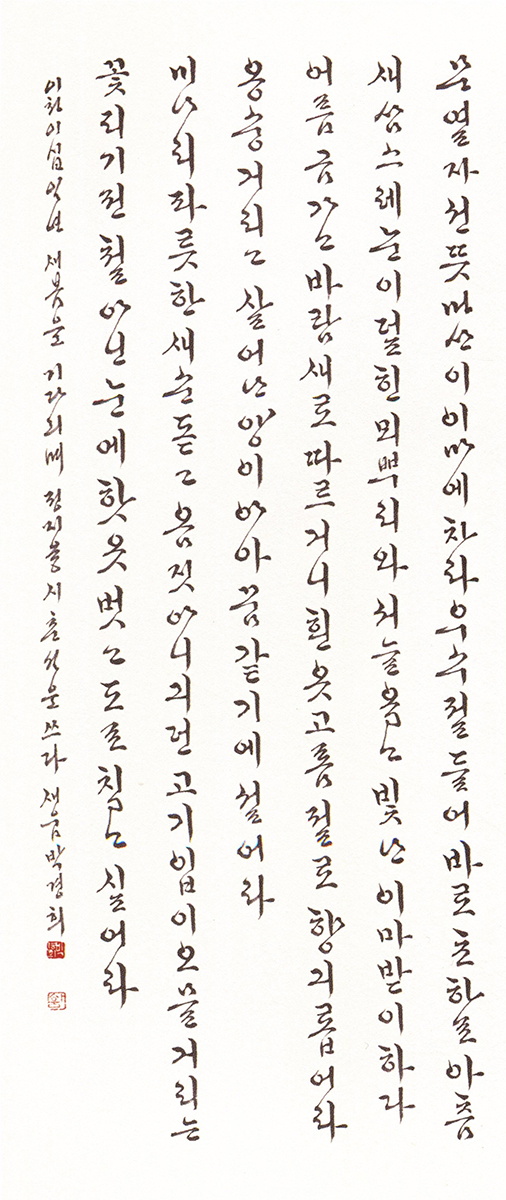 문열자선뜻먼산이이마에차라우수절들어바로초하로아츰
새삼스레눈이덮힌뫼뿌리와서늘옵고빛난이마받이하다
어름금가고바람새로따르거니흰옷고름절로향긔롭어라
옹숭거리고살어난양이아아꿈같기에설어라
미나리파릇한새순돋고옴짓아니긔던고기입이오물거리는
꽃피기전철아닌눈에핫옷벗고도로칩고싶어라
이천이십일년 새봄을 기다리며 정지용 시 춘설을 쓰다 새움 박경희